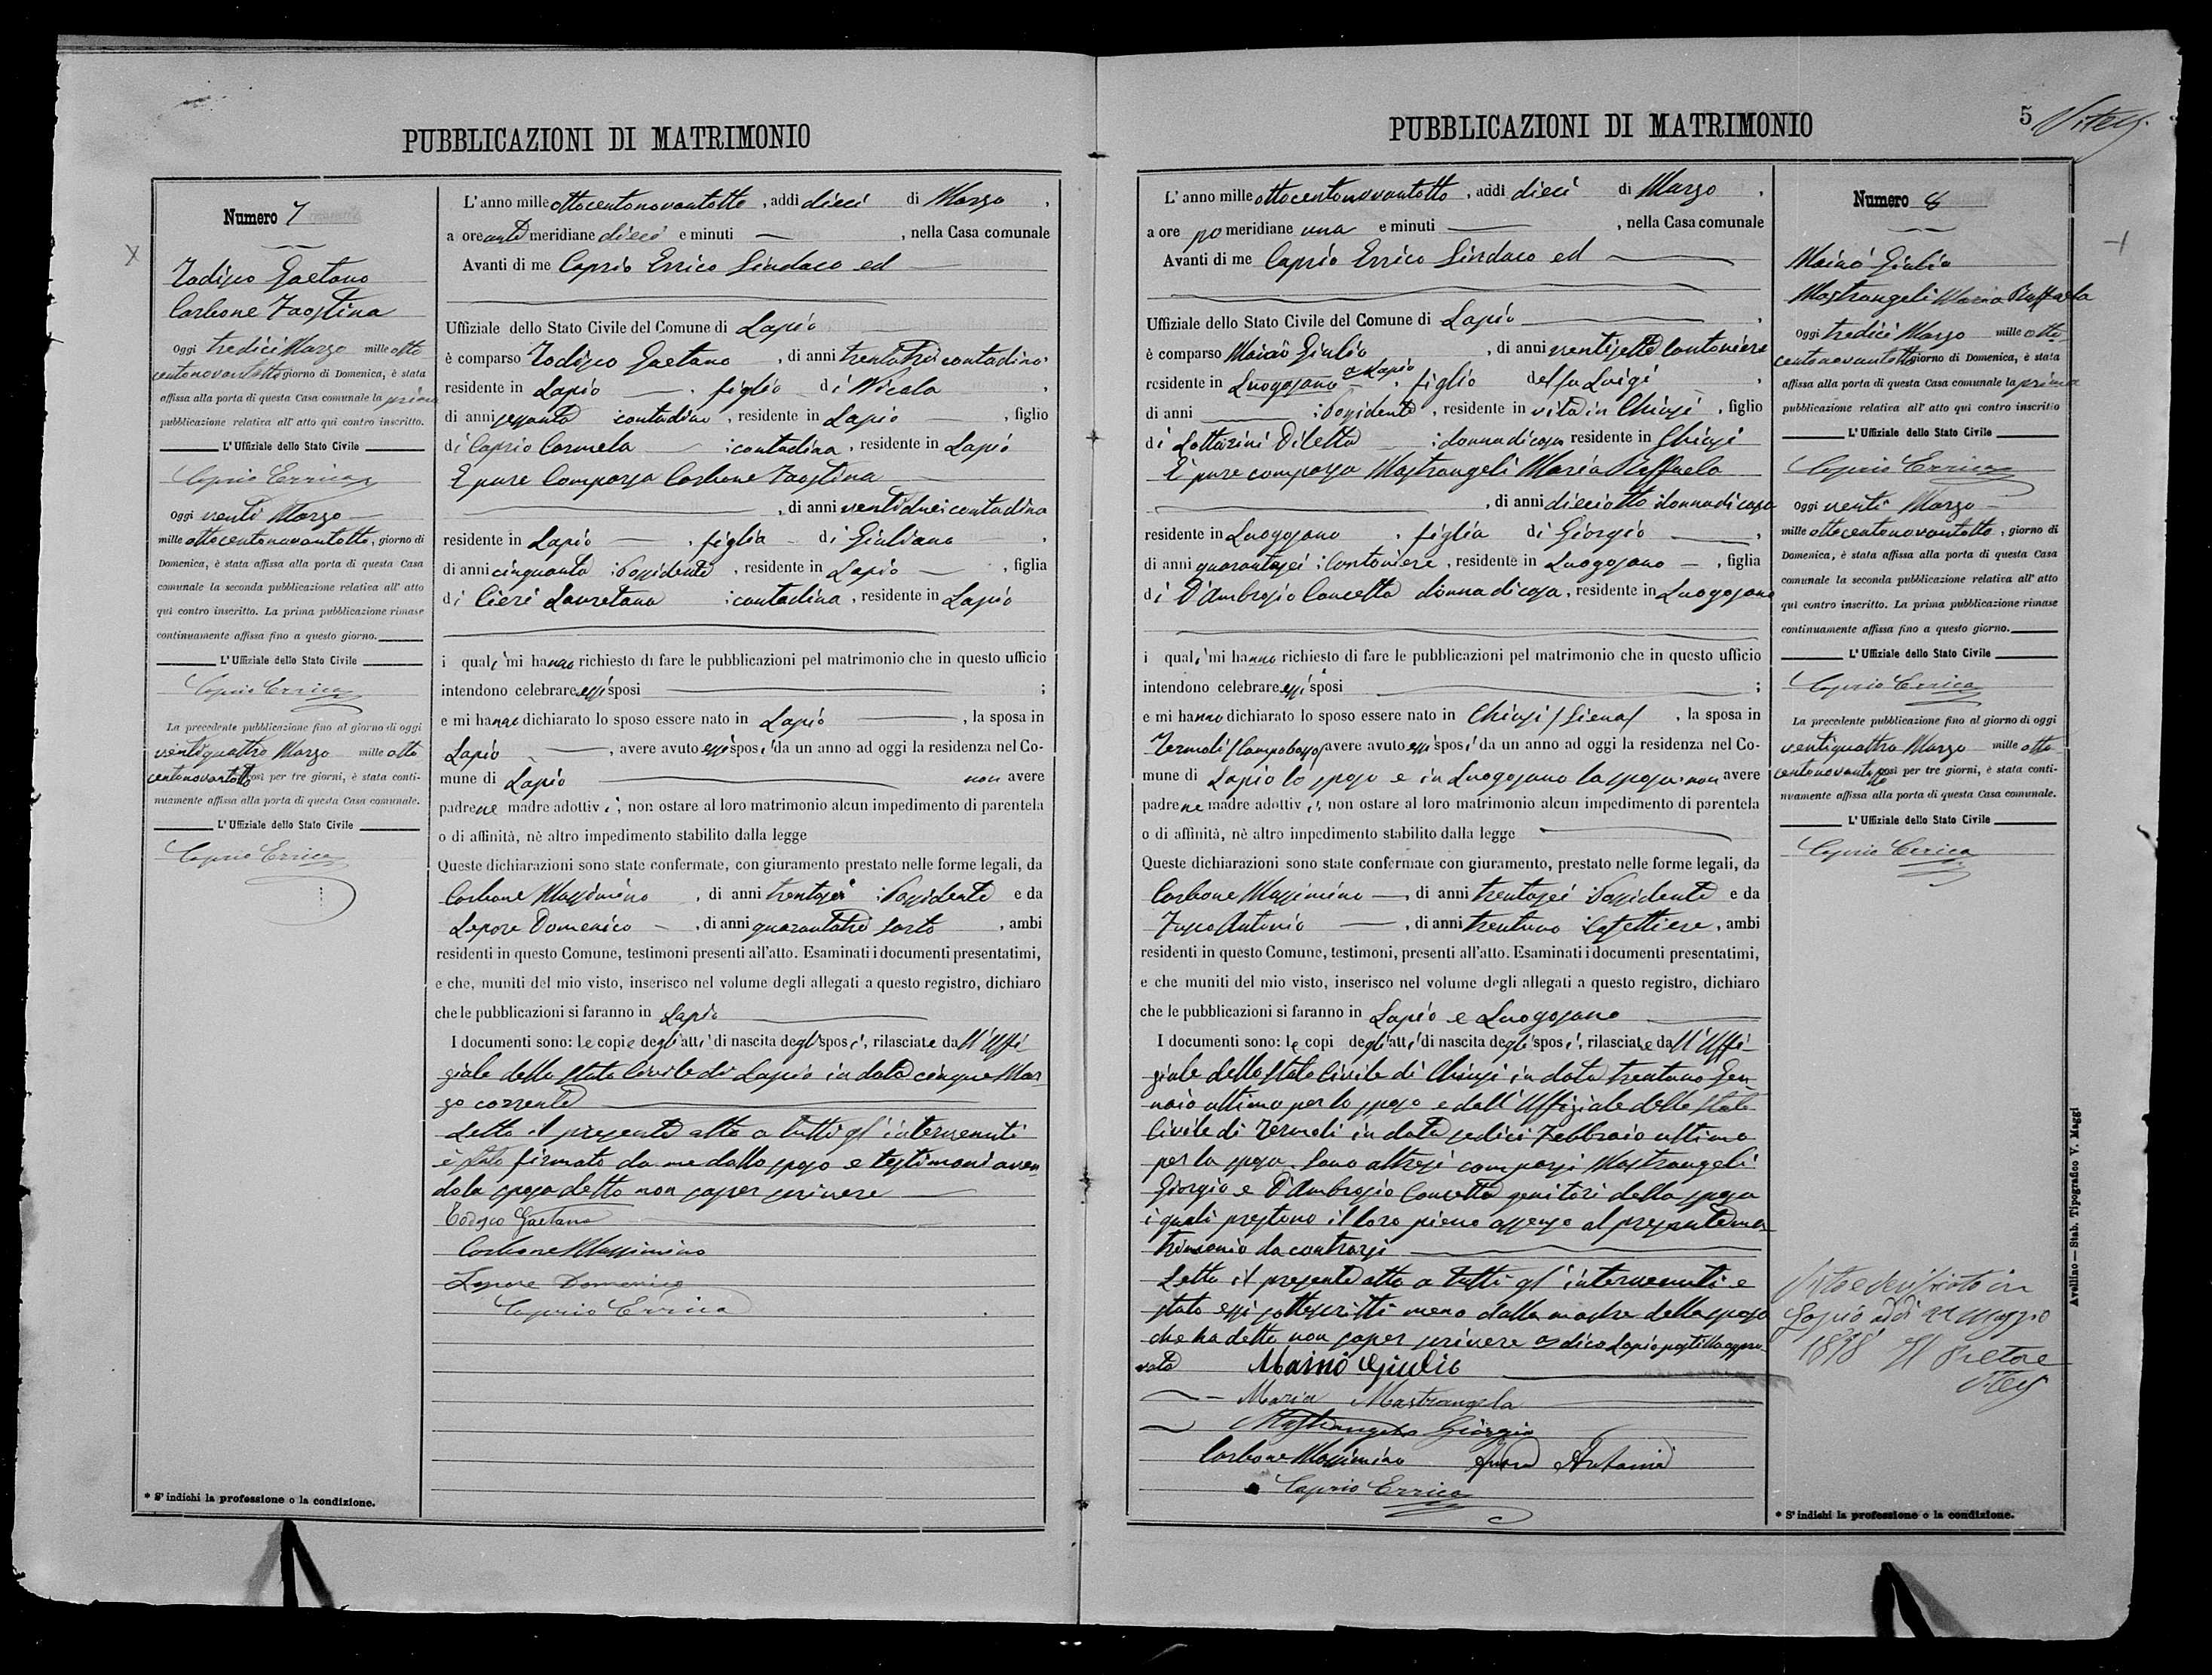 PUBBLICAZIONI DI MATRIMONIO
Numero 7
Todisco Gaetano
Carbone Faostina
Oggi tredici Marzo mille otto
centonovantotto giorno di Domenica, è stata
affissa alla porta di questa Casa comunale la prima
pubblicazione relativa all' atto qui contro inscritto.
L' Uffiziale dello Stato Civile
Caprio Errico
Oggi venti Marzo
mille ottocentonovantotto, giorno di
Domenica, è stata affissa alla porta di questa Casa
comunale la seconda pubblicazione relativa all' atto
qui contro inscritto. La prima pubblicazione rimase
continuamente affissa fino a questo giorno.
L' Uffiziale dello Stato Civile
Caprio Errico
La precedente pubblicazione fino al giorno di oggi
ventiquattro Marzo mille otto
centonovantotto così per tre giorni, è stata conti-
nuamente affissa alla porta di questa Casa comunale.
L' Uffiziale dello Stato Civile
Caprio Errico
* S' indichi la professione o la condizione.
L' anno mille ottocentonovantotto, addì dieci di Marzo,
a ore anti meridiane dieci e minuti , nella Casa comunale
Avanti di me Caprio Errico Sindaco ed
Uffiziale dello Stato Civile del Comune di Lapio
è comparso Todisco Gaetano, di anni trentatre contadino,
residente in Lapio, figlio di Nicola,
di anni sessanta contadino, residente in Lapio, figlio
di Caprio Carmela contadina, residente in Lapio
E pure comparsa Carbone Faostina
, di anni ventidue contadina
residente in Lapio, figlia di Giuliano,
di anni cinquanta Possidente, residente in Lapio, figlia
di Cieri Lauretana contadina, residente in Lapio
i quali mi hanno richiesto di fare le pubblicazioni pel matrimonio che in questo ufficio
intendono celebrare essi sposi ;
e mi hanno dichiarato lo sposo essere nato in Lapio, la sposa in
Lapio, avere avuto essi sposi da un anno ad oggi la residenza nel Co-
mune di Lapio non avere
padre ne madre adottivi, non ostare al loro matrimonio alcun impedimento di parentela
o di affinità, nè altro impedimento stabilito dalla legge
Queste dichiarazioni sono state confermate, con giuramento prestato nelle forme legali, da
Carbone Massimino, di anni trentasei Possidente e da
Lepore Domenico, di anni quarantatre sarto, ambi
residenti in questo Comune, testimoni presenti all'atto. Esaminati i documenti presentatimi,
e che, muniti del mio visto, inserisco nel volume degli allegati a questo registro, dichiaro
che le pubblicazioni si faranno in Lapio
I documenti sono: Le copie degli atti di nascita degli sposi, rilasciate dall'Uffi-
ziale dello Stato Civile di Lapio in data cinque Mar
zo corrente
Letto il presente atto a tutti gl'intervenuti
è stato firmato da me dallo sposo e testimoni aven
do la sposa detto non saper scrivere
Todisco Gaetano
Carbone Massimino
Lepore Domenico
Caprio Errico
PUBBLICAZIONI DI MATRIMONIO
5 Vitelj
L' anno mille ottocentonovantotto, addì dieci di Marzo,
a ore po meridiane una e minuti , nella Casa comunale
Avanti di me Caprio Errico Sindaco ed
Uffiziale dello Stato Civile del Comune di Lapio,
è comparso Mainò Giulio, di anni ventisette Cantoniere
residente in Luogosano a Lapio, figlio del fu Luigi,
di anni Possidente, residente in vita in Chiusi, figlio
di Lottarini Diletta donna di casa residente in Chiusi
E pure comparsa Mastrangeli Maria Raffaela
, di anni dieciotto donna di casa
residente in Luogosano, figlia di Giorgio,
di anni quarantasei Cantoniere, residente in Luogosano, figlia
di D'Ambrosio Concetta donna di casa, residente in Luogosano
i quali mi hanno richiesto di fare le pubblicazioni pel matrimonio che in questo ufficio
intendono celebrare essi sposi ;
e mi hanno dichiarato lo sposo essere nato in Chiusi/Siena/, la sposa in
Termoli/Campobasso/ avere avuto essi sposi da un anno ad oggi la residenza nel Co-
mune di Lapio lo sposo e in Luogosano la sposa non avere
padre ne madre adottivi, non ostare al loro matrimonio alcun impedimento di parentela
o di affinità, nè altro impedimento stabilito dalla legge
Queste dichiarazioni sono state confermate con giuramento, prestato nelle forme legali, da
Carbone Massimino, di anni trentasei Possidente e da
Fusco Antonio, di anni trentuno Cafettiere, ambi
residenti in questo Comune, testimoni, presenti all'atto. Esaminati i documenti presentatimi,
e che muniti del mio visto, inserisco nel volume degli allegati a questo registro, dichiaro
che le pubblicazioni si faranno in Lapio e Luogosano
I documenti sono: le copi degli atti di nascita degli sposi, rilasciate dall'Uffi-
ziale dello Stato Civile di Chiusi in data trentuno Gen
naio ultimo per lo sposo e dall'Uffiziale dello Stato
Civile di Termoli in data sedici Febbraio ultimo
per la sposa. Sono altresì comparsi Mastrangeli
Giorgio e D'Ambrosio Concetta genitori della sposa
i quali prestono il loro pieno assenso al presente ma
trimonio da contrarsi
Letto il presente atto a tutti gl'intervenuti e
stato essi sottoscritti meno dalla madre della sposa
che ha detto non saper scrivere a dico Lapio postilla appro
vata Mainò Giulio
Maria Mastrangelo
Mastrangelo Giorgio
Carbone Massimino Fusco Antonio
Caprio Errico
Numero 8
Mainò Giulio
Mastrangeli Maria Raffaela
Oggi tredici Marzo mille otto-
centonovantotto giorno di Domenica, è stata
affissa alla porta di questa Casa comunale la prima
pubblicazione relativa all' atto qui contro inscritto
L' Uffiziale dello Stato Civile
Caprio Errico
Oggi venti Marzo
mille ottocentonovantotto, giorno di
Domenica, è stata affissa alla porta di questa Casa
comunale la seconda pubblicazione relativa all' atto
qui contro inscritto. La prima pubblicazione rimase
continuamente affissa fino a questo giorno.
L' Uffiziale dello Stato Civile
Caprio Errico
La precedente pubblicazione fino al giorno di oggi
ventiquattro Marzo mille otto
centonovantotto così per tre giorni, è stata conti-
nuamente affissa alla porta di questa Casa comunale.
L' Uffiziale dello Stato Civile
Caprio Errico
Visto e verificato in
Lapio addì 21 Maggio
1898 Il Pretore
Vitelj
* S' indichi la professione o la condizione.
Avellino — Stab. Tipografico V. Maggi